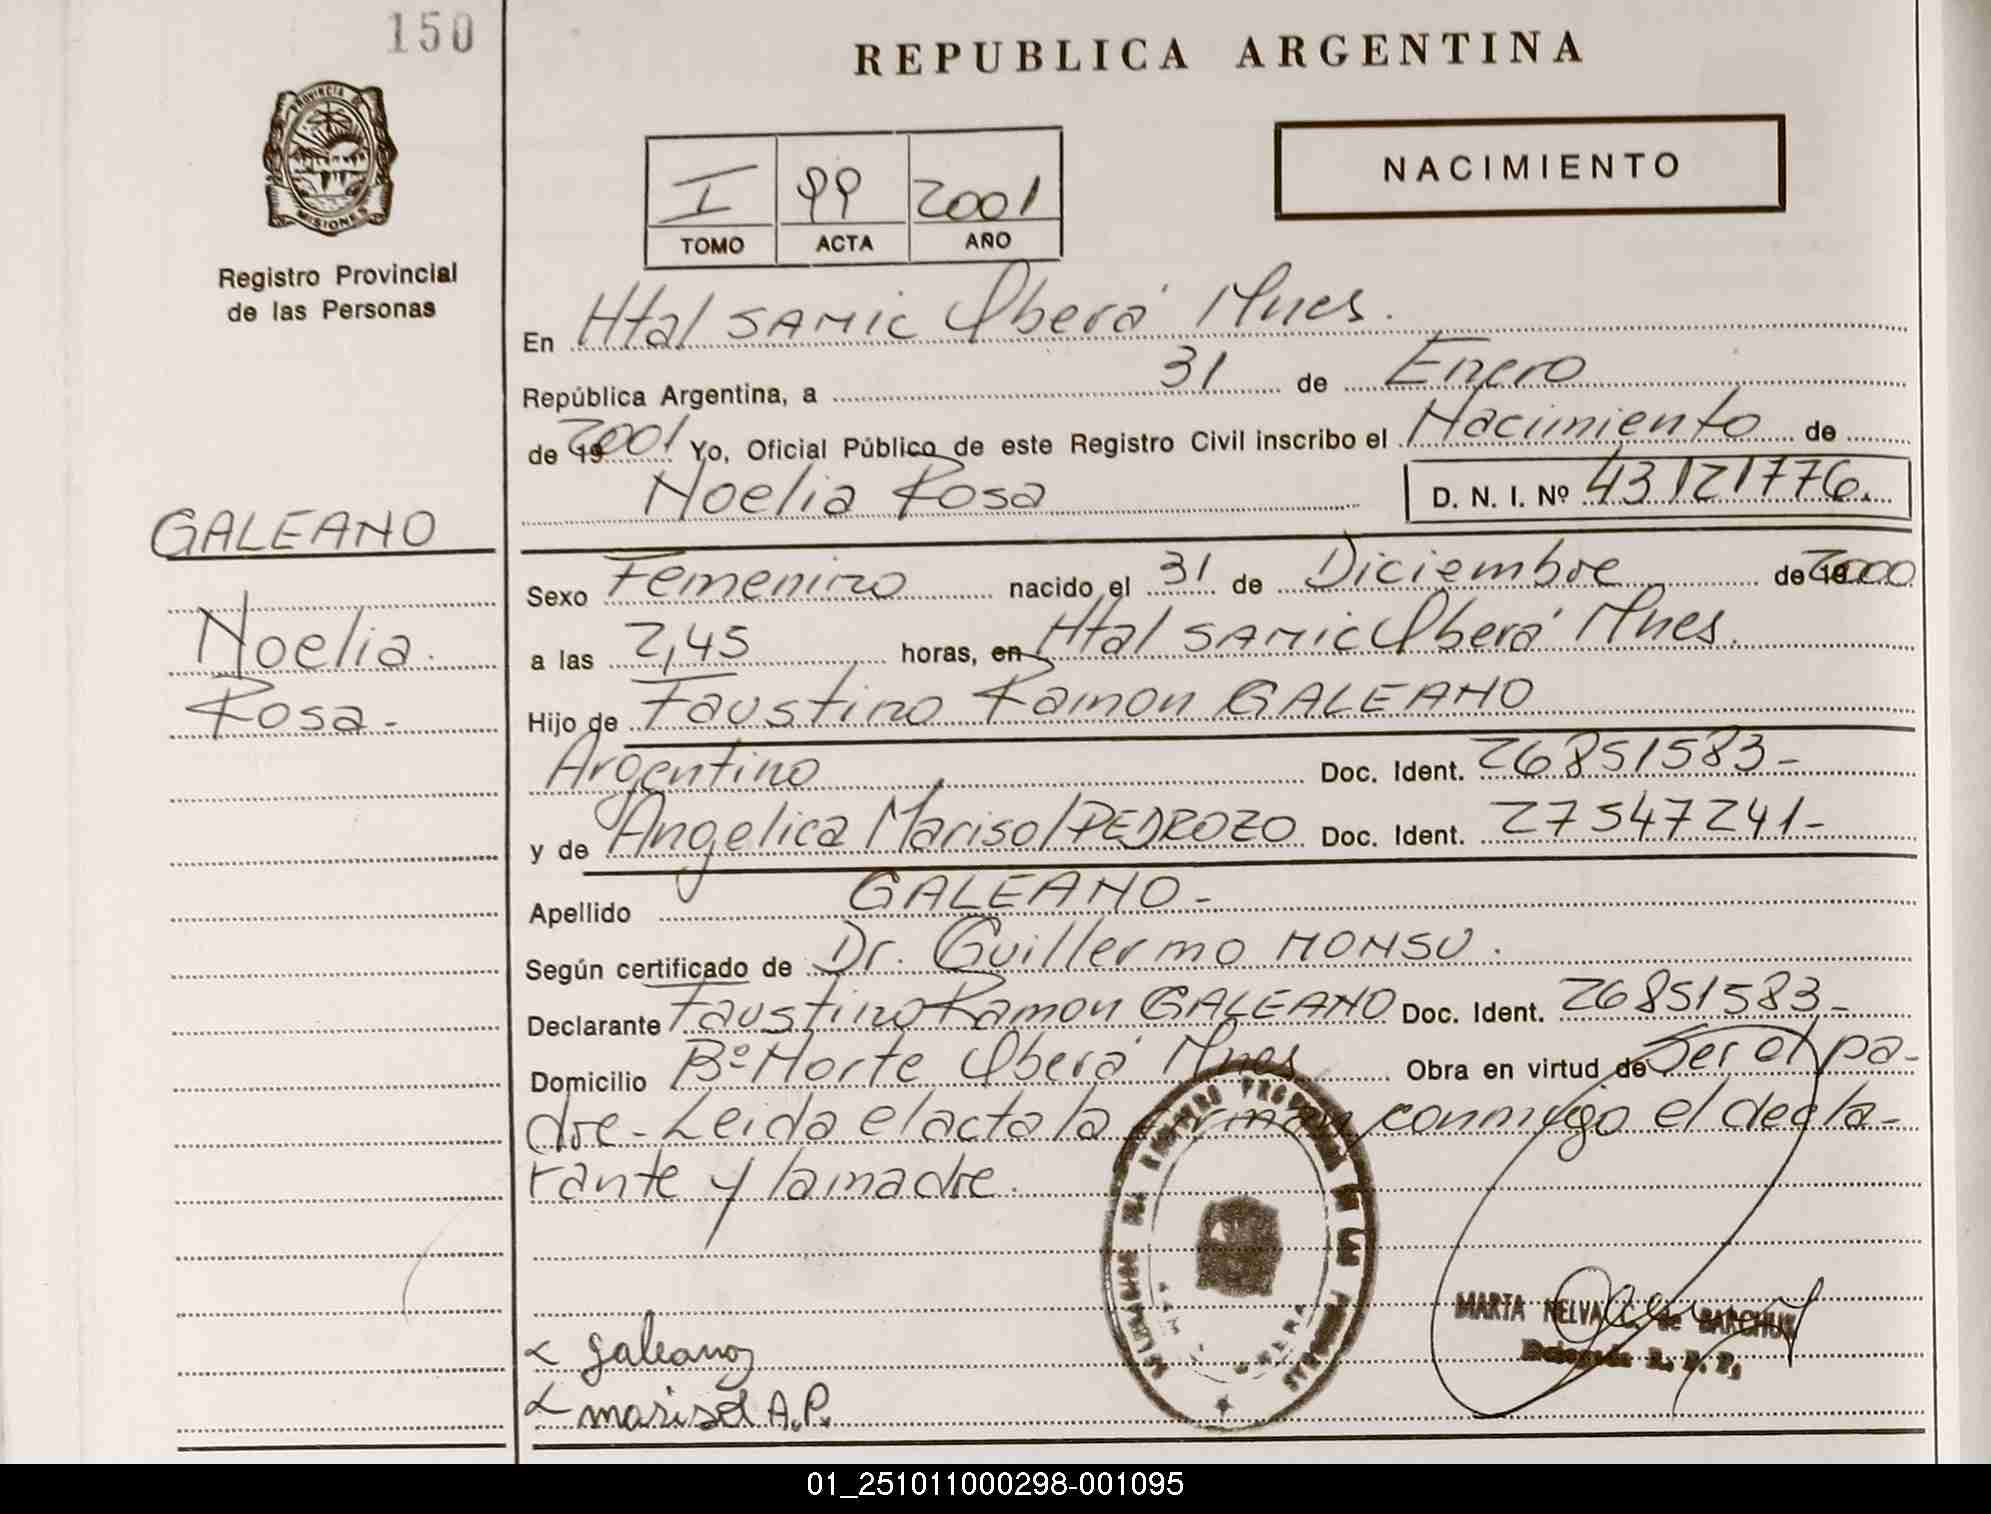 150
REPUBLICA ARGENTINA
PROVINCIA DE
MISIONES
Registro Provincial
de las Personas
I 99 2001
TOMO ACTA AÑO
NACIMIENTO
En Htal SAMIC Oberá Mnes.
República Argentina, a 31 de Enero
de 19 2001 Yo, Oficial Público de este Registro Civil inscribo el Nacimiento de
Noelia Rosa D. N. I. Nº 43121776.
GALEANO
Noelia.
Rosa-
Sexo Femenino nacido el 31 de Diciembre de 19 2000
a las 2,45 horas, en Htal SAMIC Oberá Mnes.
Hijo de Faustino Ramon GALEANO
Argentino Doc. Ident. 26851583-
y de Angelica Marisol PEDROZO Doc. Ident. 27547241-
Apellido GALEANO-
Según certificado de Dr. Guillermo MONSU.
Declarante Faustino Ramon GALEANO Doc. Ident. 26851583-
Domicilio Bº Norte Oberá Mnes Obra en virtud de Ser el pa-
dre- Leida el acta la firman conmigo el decla-
rante y la madre.
MARTA NELVA C. de BARCHUK
Delegada R. P. P.
galeano
marisol A.P.
01_251011000298-001095